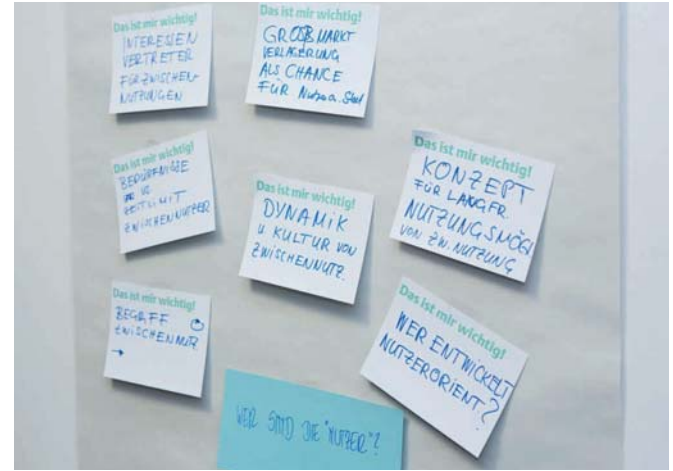 Das ist mir wichtig!
INTERESSEN
VERTRETER
FÜR ZWISCHEN-
NUTZUNGEN
Das ist mir wichtig!
GROSSMARKT
VERLAGERUNG
ALS CHANCE
FÜR Nutzer a.
Das ist mir wichtig!
BEDÜRFNISSE
ZEITLIMIT
ZWISCHENNUTZER
Das ist mir wichtig!
DYNAMIK
U KULTUR VON
ZWISCHENNUTZ.
Das ist mir wichtig!
KONZEPT
FÜR LANGFR.
NUTZUNGSMÖGL
VON ZW. NUTZUNG
Das ist mir wichtig!
BEGRIFF
ZWISCHENNUTZ
→
Das ist mir wichtig!
WER ENTWICKELT
NUTZERORIENT.?
WER SIND DIE "NUTZER"?